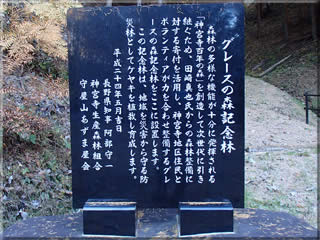 グレースの森記念林
森林の多様な機能が十分に発揮される
「神宮寺百年の森」を創造して次世代に引き
継ぐため、田崎真也氏からの森林整備に
対する寄付を活用し、神宮寺地区住民と
ボランティアが力を合わせ整備するグレ
ースの森記念林をここに設置します。
この記念林は、地域を災害から守る防
災林としてケヤキを植栽し育成します。
平成二十四年五月吉日
長野県知事 阿部守一
神宮寺生産森林組合
守屋山あずま屋会